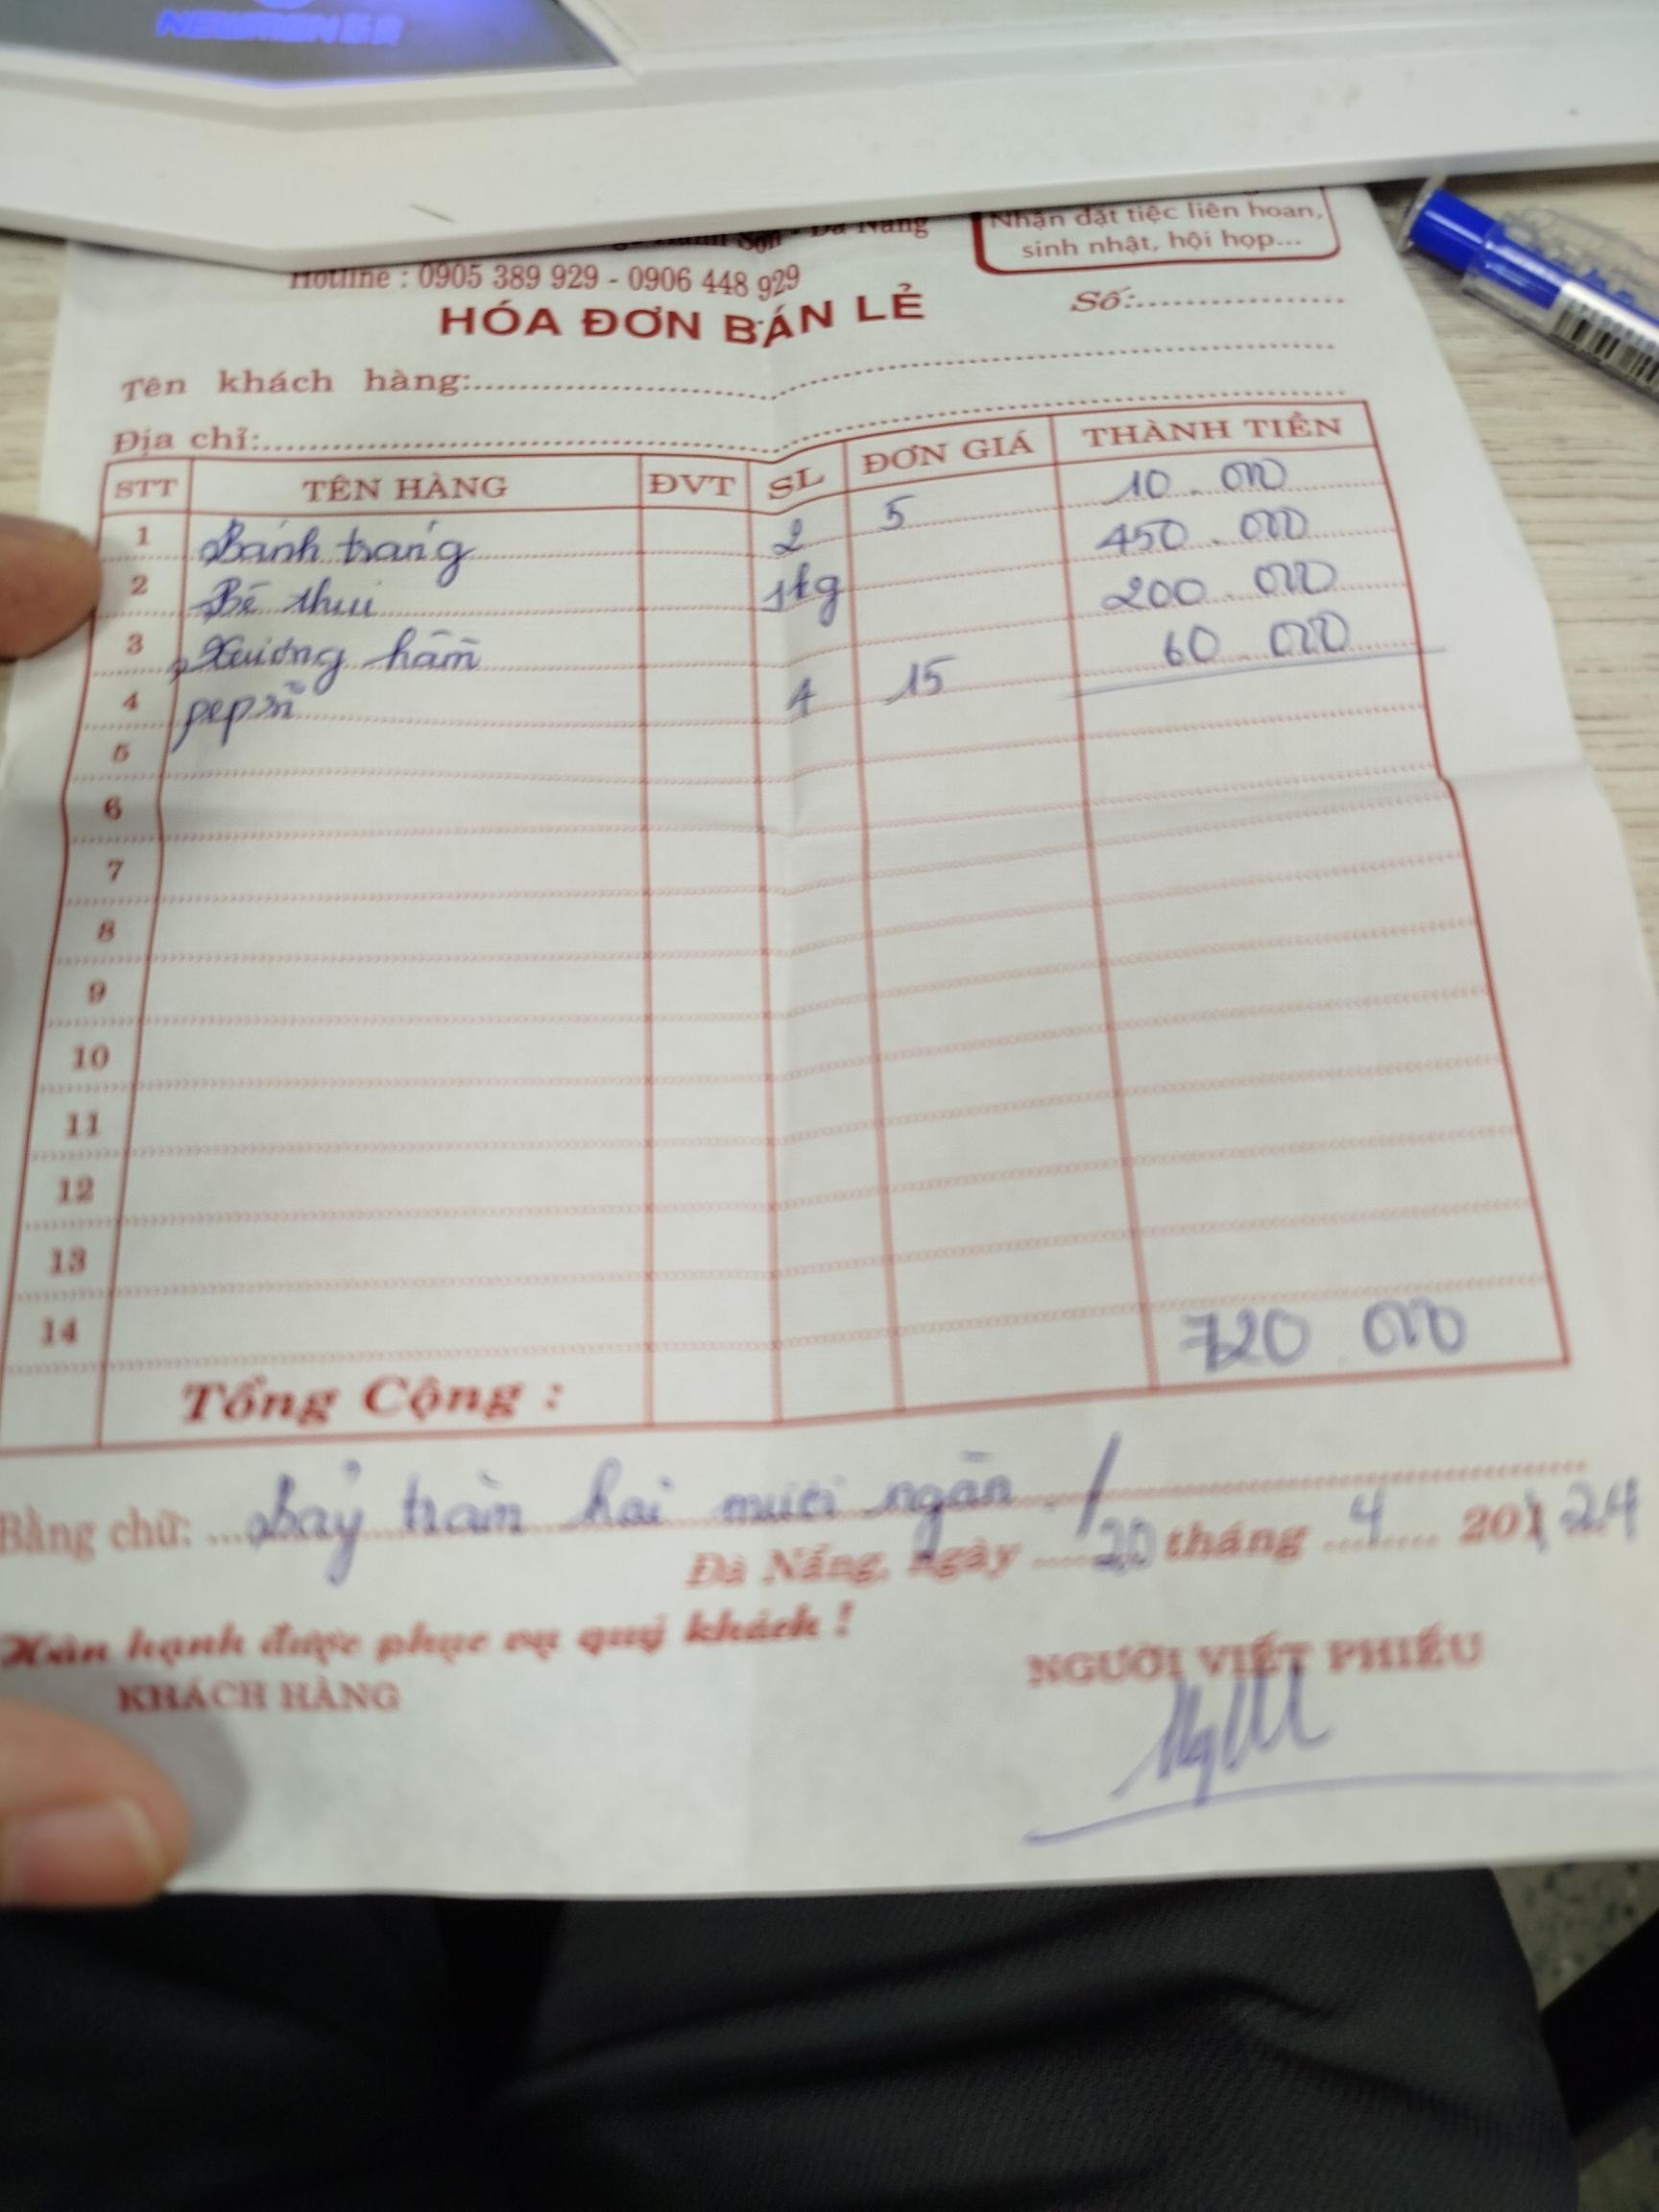 Đà Nẵng
Hotline : 0905 389 929 - 0906 448 929
Nhận đặt tiệc liên hoan,
sinh nhật, hội họp...
HÓA ĐƠN BÁN LẺ
Số:
Tên khách hàng:
Địa chỉ:
STT TÊN HÀNG ĐVT SL ĐƠN GIÁ THÀNH TIỀN
1 Bánh tráng 2 5 10.000
2 Bê thui 1kg 450.000
3 Xương hầm 200.000
4 pepsi 4 15 60.000
5
6
7
8
9
10
11
12
13
14
Tổng Cộng : 720.000
Bằng chữ: Bảy trăm hai mươi ngàn ./
Đà Nẵng, ngày 20 tháng 4 201 24
Hân hạnh được phục vụ quý khách !
KHÁCH HÀNG NGƯỜI VIẾT PHIẾU